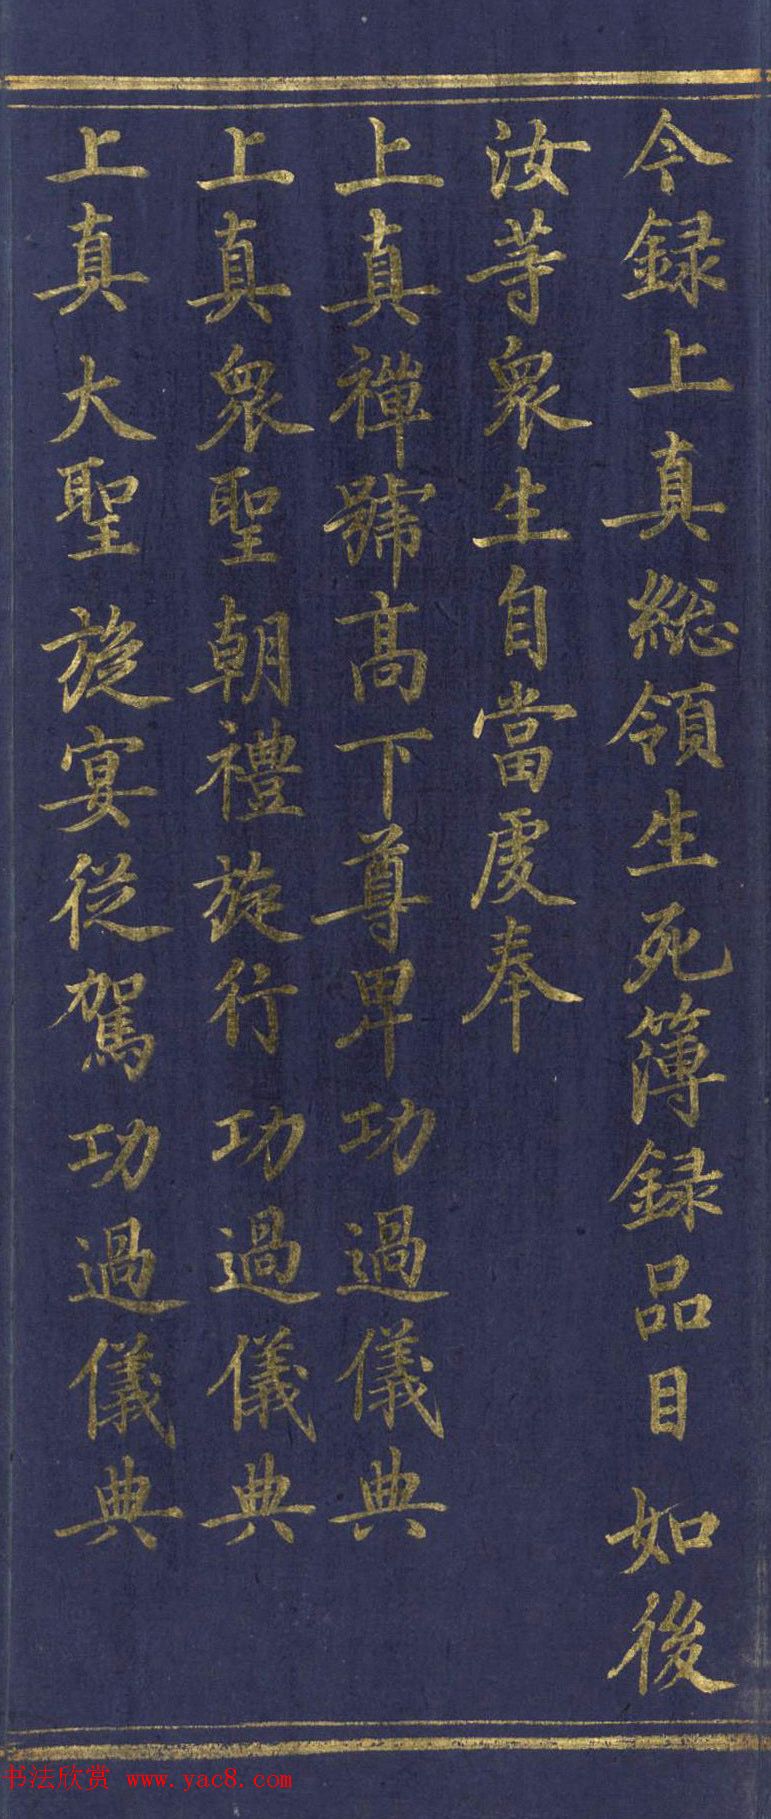 今録上真総領生死簿録品目如後
汝等衆生自當虔奉
上真禪號髙下尊卑功過儀典
上真衆聖朝禮旋行功過儀典
上真大聖旋宴從駕功過儀典
书法欣赏 www.yac8.com